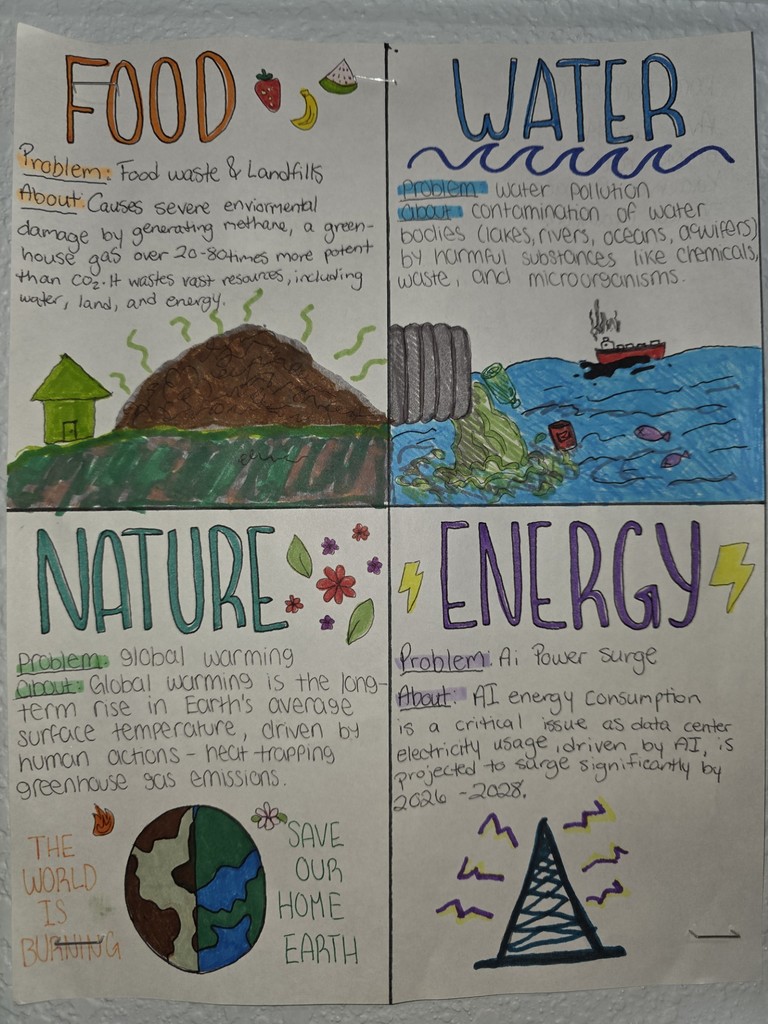 FOOD
Problem: Food waste & Landfills
About: Causes severe enviormental
damage by generating methane, a green-
house gas over 20-80 times more potent
than CO2. It wastes vast resources, including
water, land, and energy.
WATER
Problem: Water pollution
About: contamination of water
bodies (lakes, rivers, oceans, aqwifers)
by harmful substances like chemicals,
waste, and microorganisms.
NATURE
Problem: global warming
About: Global warming is the long-
term rise in Earth's average
surface temperature, driven by
human actions - heat-trapping
greenhouse gas emissions.
THE
WORLD
IS
BURNING
SAVE
OUR
HOME
EARTH
ENERGY
Problem: Ai Power Surge
About: AI energy consumption
is a critical issue as data center
electricity usage, driven by AI, is
projected to surge significantly by
2026 - 2028.